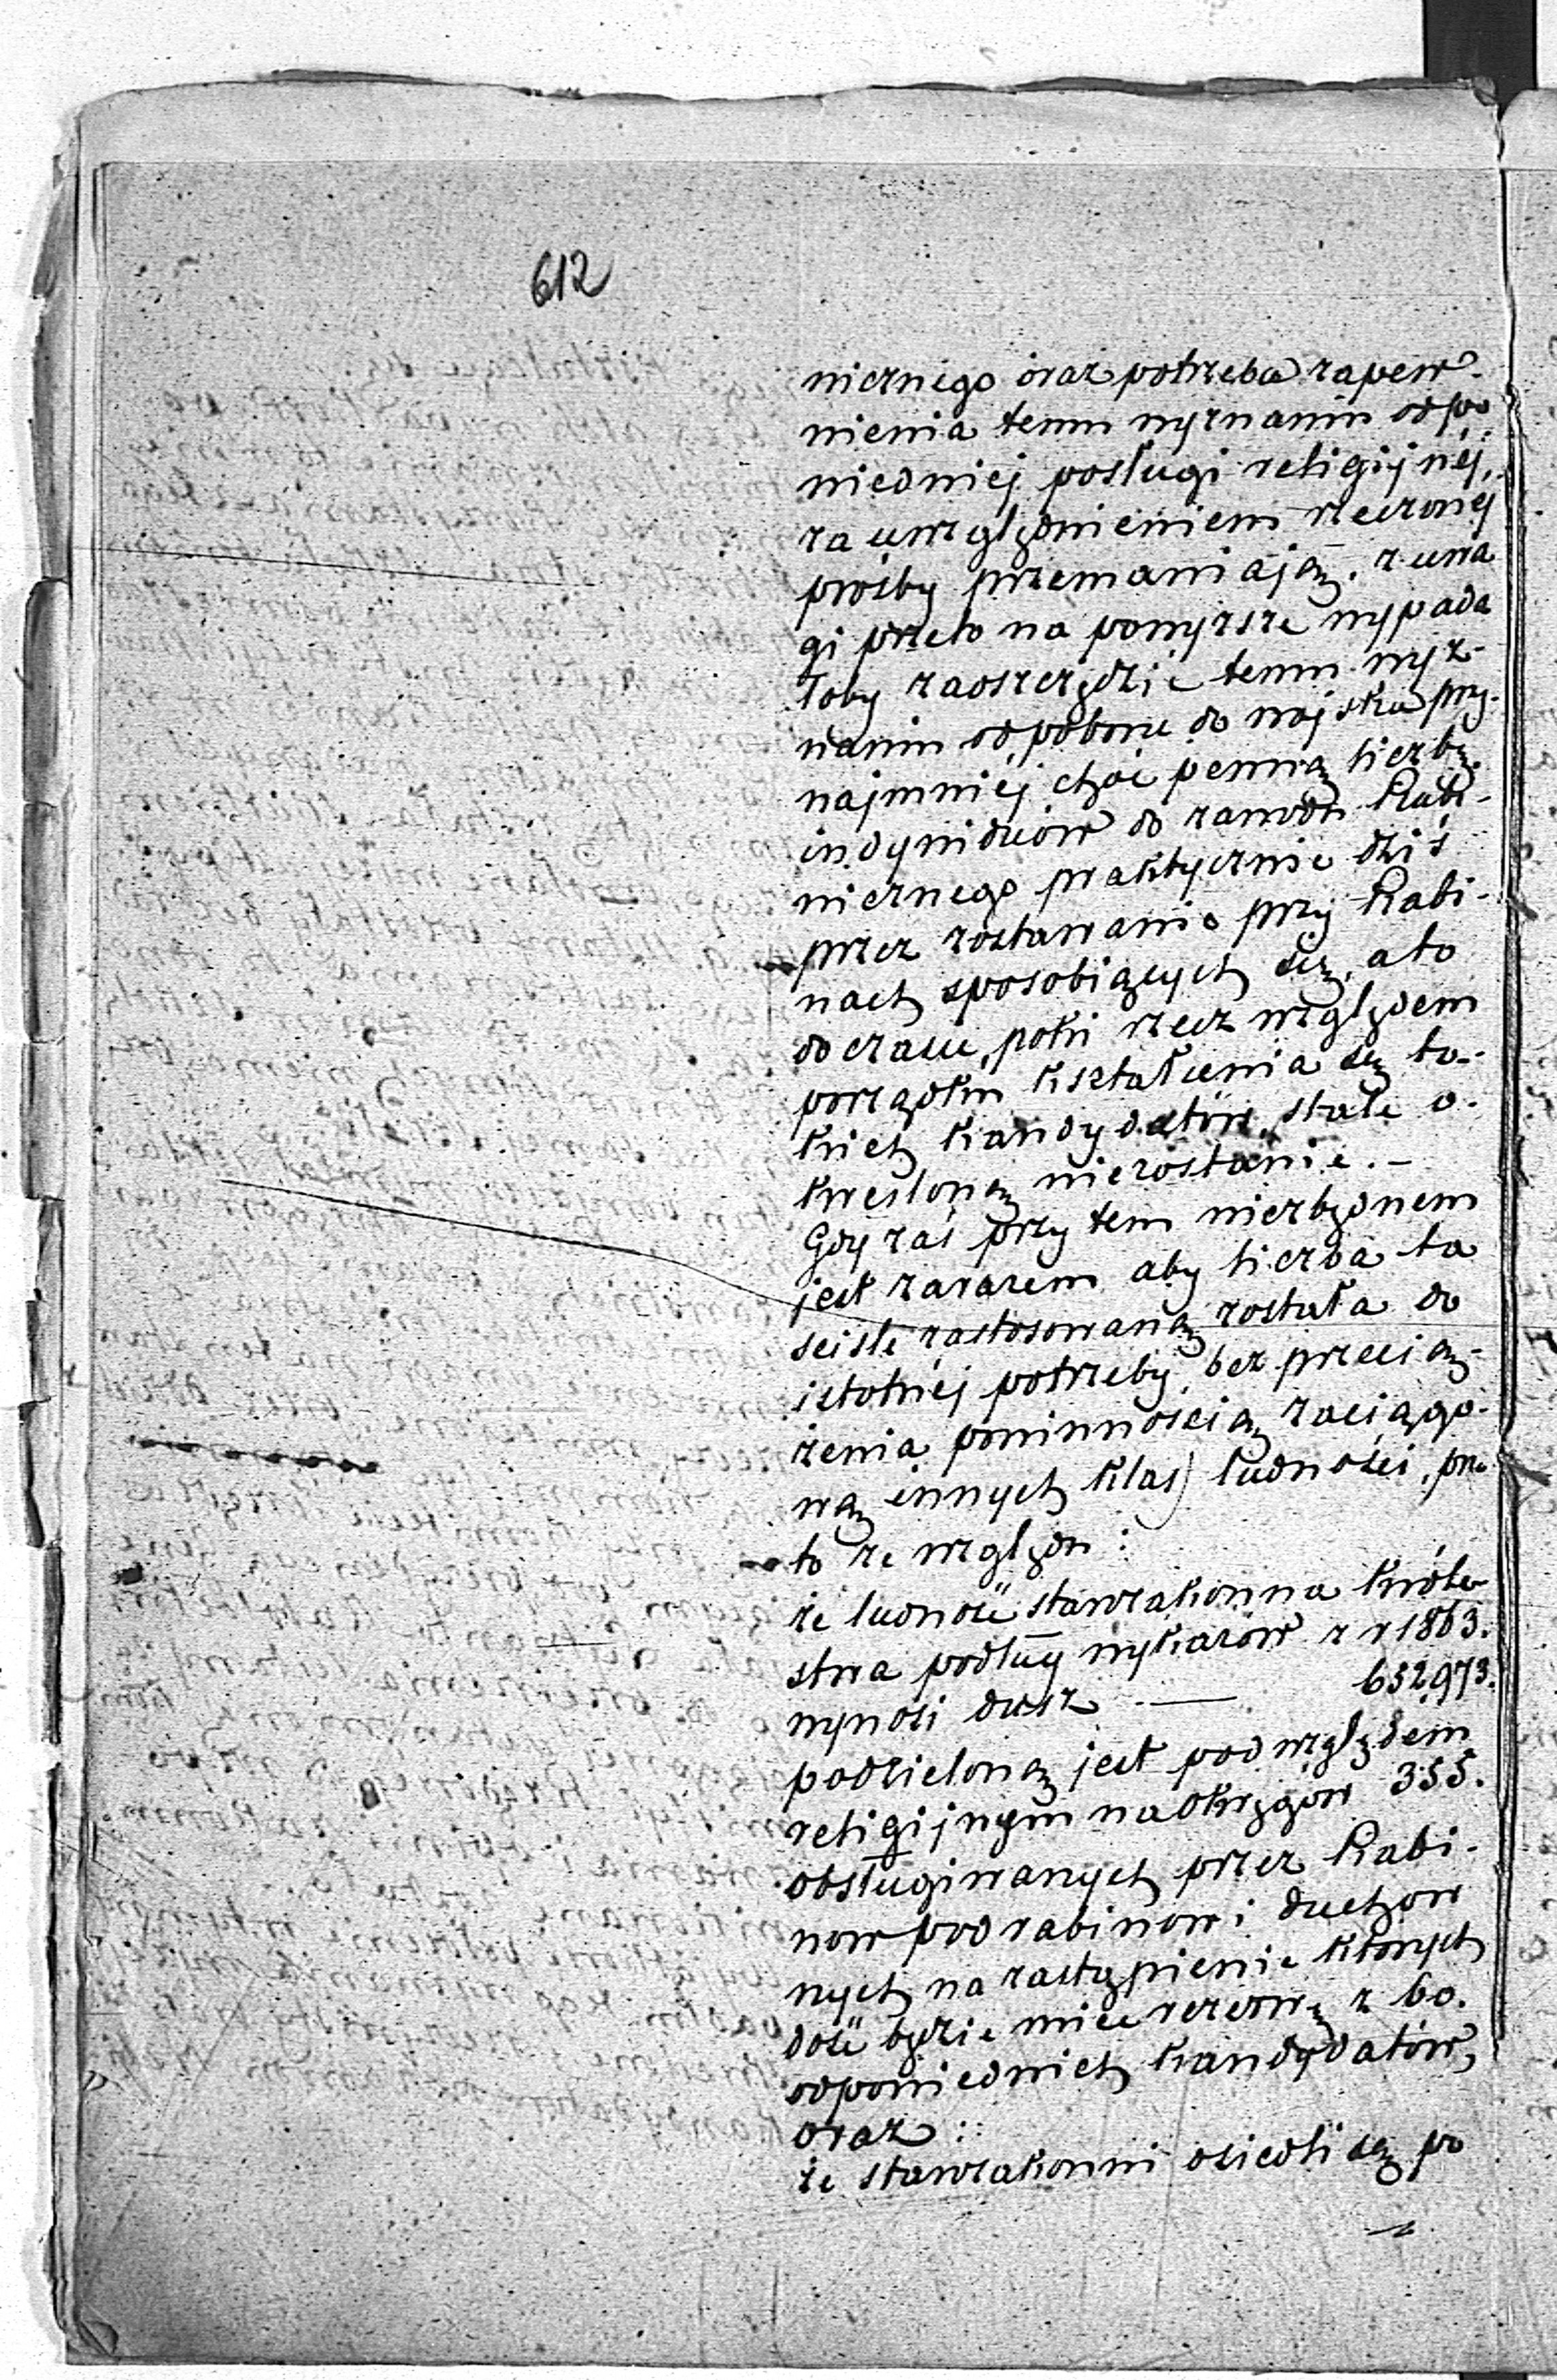 612
nicznego oraz potrzeba zapew-
nienia temu wyznaniu odpo
wiedniej posługi religijnéj,
za uwzględnieniem rzeczonéj
prośby przemawiają, z uwa
gi przeto na powyższe wypada
łoby zaoszczędzić temu wyz-
naniu od poboru do wojska przy-
najmniéj choć pewną liczbę
indywiduów do zawodu Rabi-
nicznego praktycznie dziś
przez zostawanie przy Rabi-
nach sposobiących się, a to
do czasu, póki rzecz względem
porządku kształcenia się ta-
kich kandydatów, stale o-
kreśloną niezostanie. —
Gdy zaś przy tem niezbędnem
jest zarazem aby liczba ta
ściśle zastosowaną została do
istotnéj potrzeby, bez przecią-
żenia powinnością zaciągo-
wą innych klas ludności, prze
to ze względu:
że ludność starozakonna Króle-
stwa podług wykazów z r 1863.
wynosi dusz — 652,973.
podzieloną jest pod względem
religijnym na okręgów 355.
obsługiwanych przez Rabi-
nów podrabinów i duchow
nych na zastąpienie których
dość będzie mieć rezerwę z 60.
odpowiednich kandydatów,
oraz:
że starozakonni osiedli są po